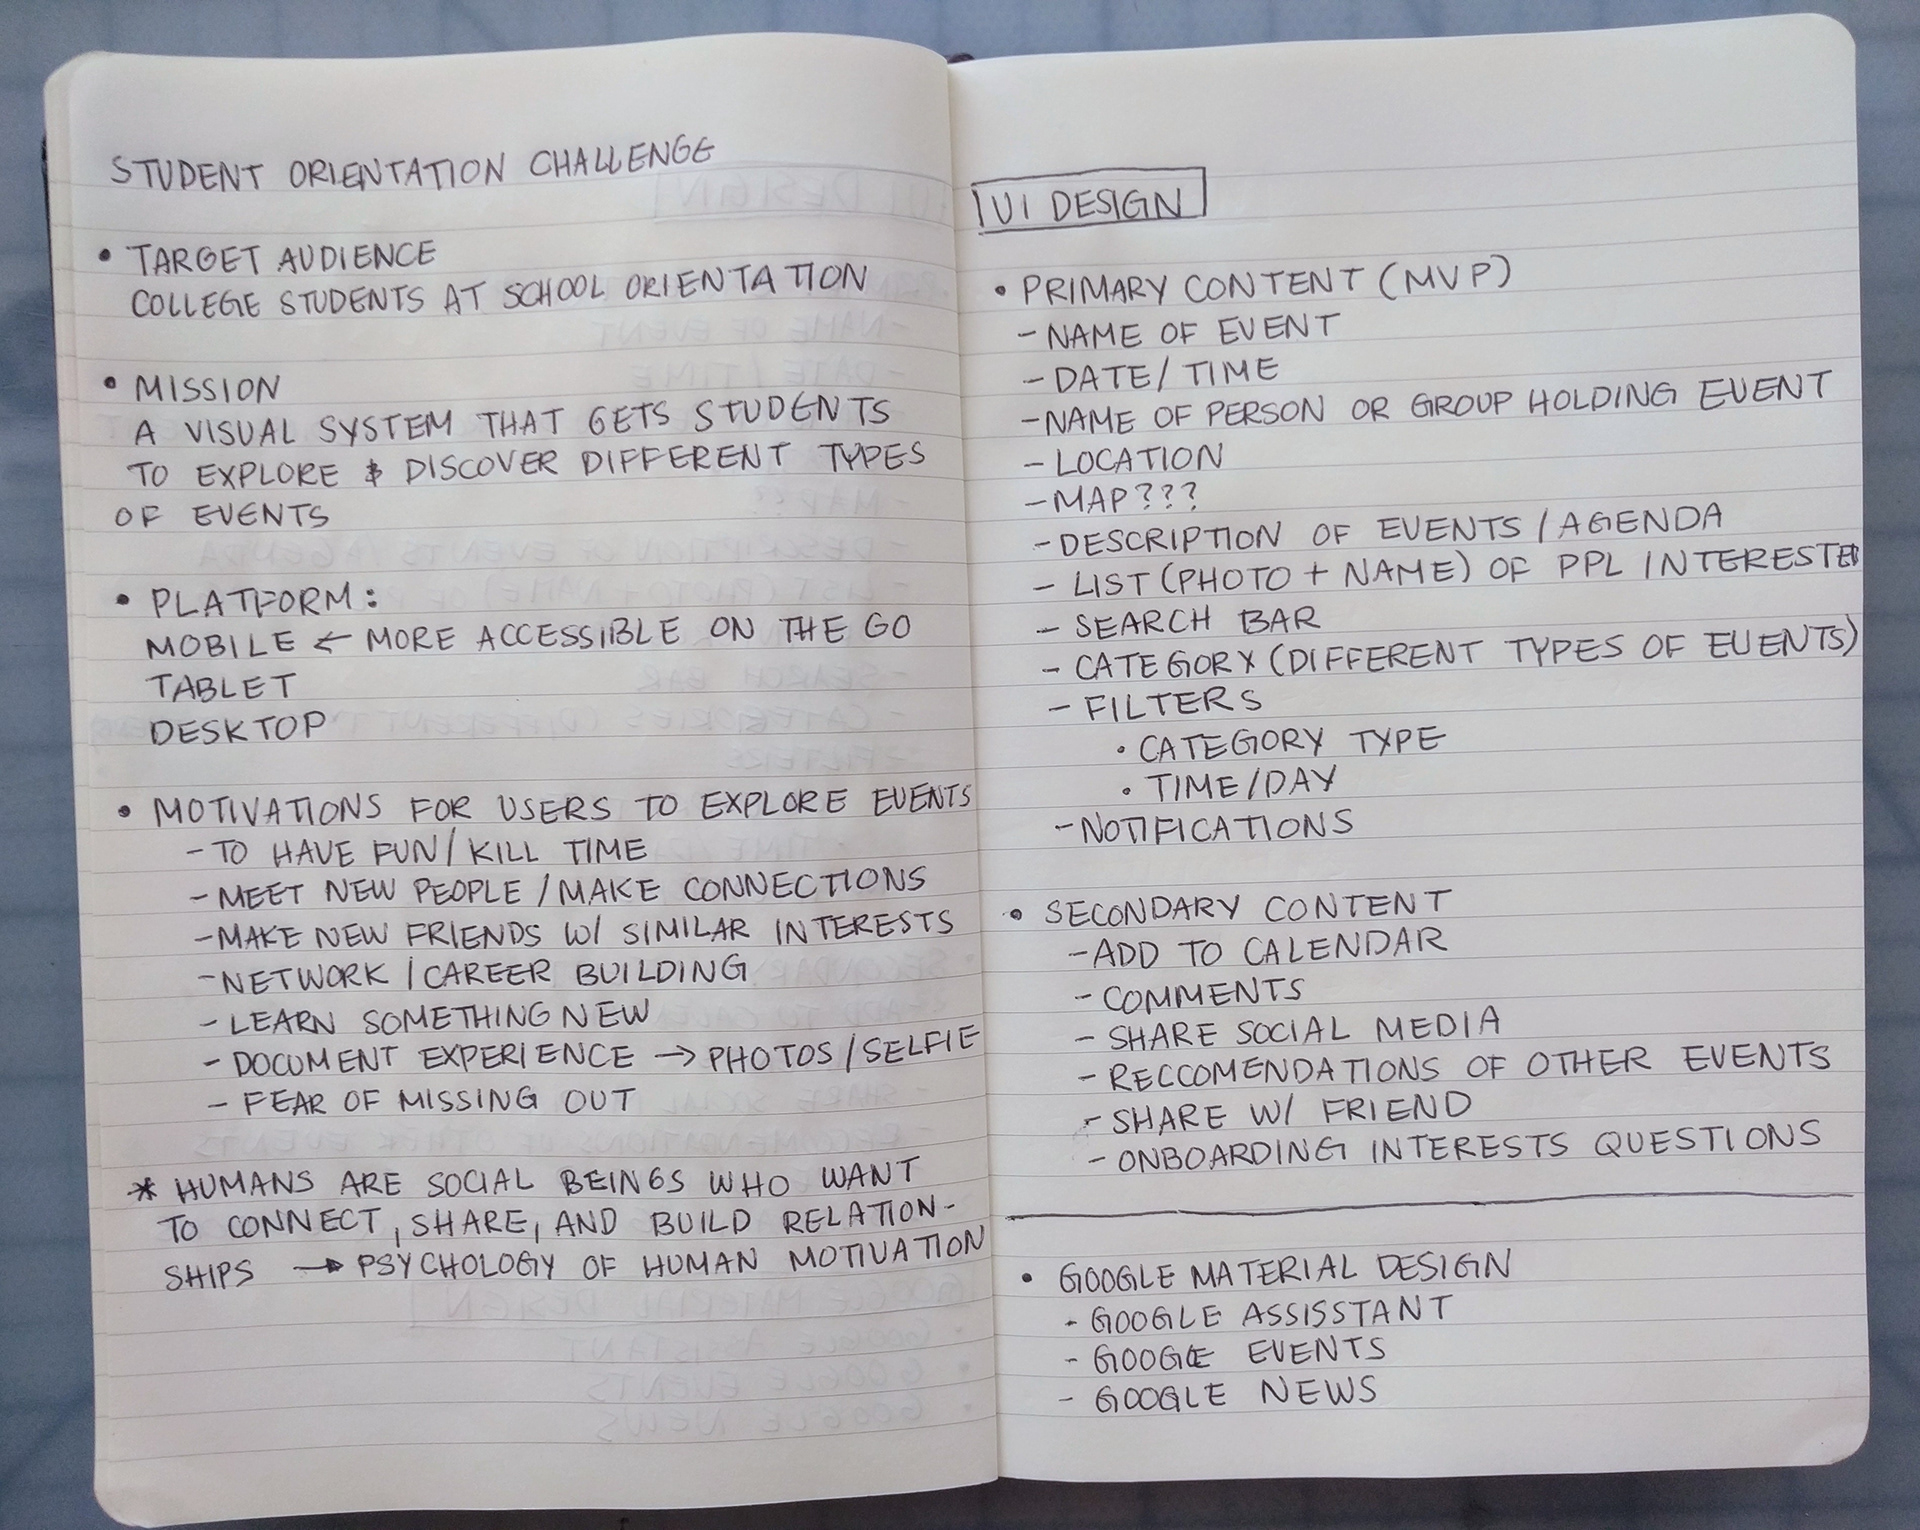 STUDENT ORIENTATION CHALLENGE
• TARGET AUDIENCE
COLLEGE STUDENTS AT SCHOOL ORIENTATION
• MISSION
A VISUAL SYSTEM THAT GETS STUDENTS
TO EXPLORE & DISCOVER DIFFERENT TYPES
OF EVENTS
• PLATFORM:
MOBILE ← MORE ACCESSIBLE ON THE GO
TABLET
DESKTOP
• MOTIVATIONS FOR USERS TO EXPLORE EVENTS
- TO HAVE FUN/KILL TIME
- MEET NEW PEOPLE/MAKE CONNECTIONS
- MAKE NEW FRIENDS W/ SIMILAR INTERESTS
- NETWORK/CAREER BUILDING
- LEARN SOMETHING NEW
- DOCUMENT EXPERIENCE → PHOTOS/SELFIE
- FEAR OF MISSING OUT
* HUMANS ARE SOCIAL BEINGS WHO WANT
TO CONNECT, SHARE, AND BUILD RELATION-
SHIPS → PSYCHOLOGY OF HUMAN MOTIVATION
UI DESIGN
• PRIMARY CONTENT (MVP)
- NAME OF EVENT
- DATE/TIME
- NAME OF PERSON OR GROUP HOLDING EVENT
- LOCATION
- MAP???
- DESCRIPTION OF EVENTS/AGENDA
- LIST (PHOTO + NAME) OF PPL INTERESTED
- SEARCH BAR
- CATEGORY (DIFFERENT TYPES OF EVENTS)
- FILTERS
• CATEGORY TYPE
• TIME/DAY
- NOTIFICATIONS
• SECONDARY CONTENT
- ADD TO CALENDAR
- COMMENTS
- SHARE SOCIAL MEDIA
- RECCOMENDATIONS OF OTHER EVENTS
- SHARE W/ FRIEND
- ONBOARDING INTERESTS QUESTIONS
• GOOGLE MATERIAL DESIGN
- GOOGLE ASSISSTANT
- GOOGLE EVENTS
- GOOGLE NEWS